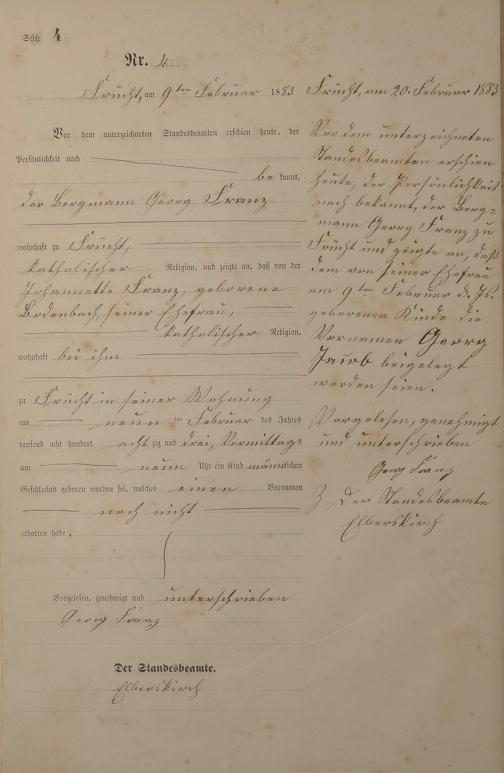 Seite 4
Nr. 4
Frücht, am 9ten Februar 1883
Vor dem unterzeichneten Standesbeamten erschien heute, der
Persönlichkeit nach
be kannt,
der Bergmann Georg Franz
wohnhaft zu Frücht,
katholischer Religion, und zeigte an, daß von der
Johannette Franz, geborene
Bodenbach, seiner Ehefrau,
katholischer Religion,
wohnhaft bei ihm
zu Frücht in seiner Wohnung
am neun ten Februar des Jahres
tausend acht hundert acht zig und drei, Vormittags
um neun Uhr ein Kind männlichen
Geschlechts geboren worden sei, welches einen Vornamen
noch nicht
erhalten habe.
Vorgelesen, genehmigt und unterschrieben
Georg Franz
Der Standesbeamte.
Elberskirch
Frücht, am 20. Februar 1883
Vor dem unterzeichneten
Standesbeamten erschien
heute, der Persönlichkeit
nach bekannt, der Berg-
mann Georg Franz zu
Frücht und zeigte an, daß
dem von seiner Ehefrau
am 9ten Februar d. Js.
geborenen Kinde die
Vornamen Georg
Jacob beigelegt
worden seien.
Vorgelesen, genehmigt
und unterschrieben
Georg Franz
Der Standesbeamte
Elberskirch